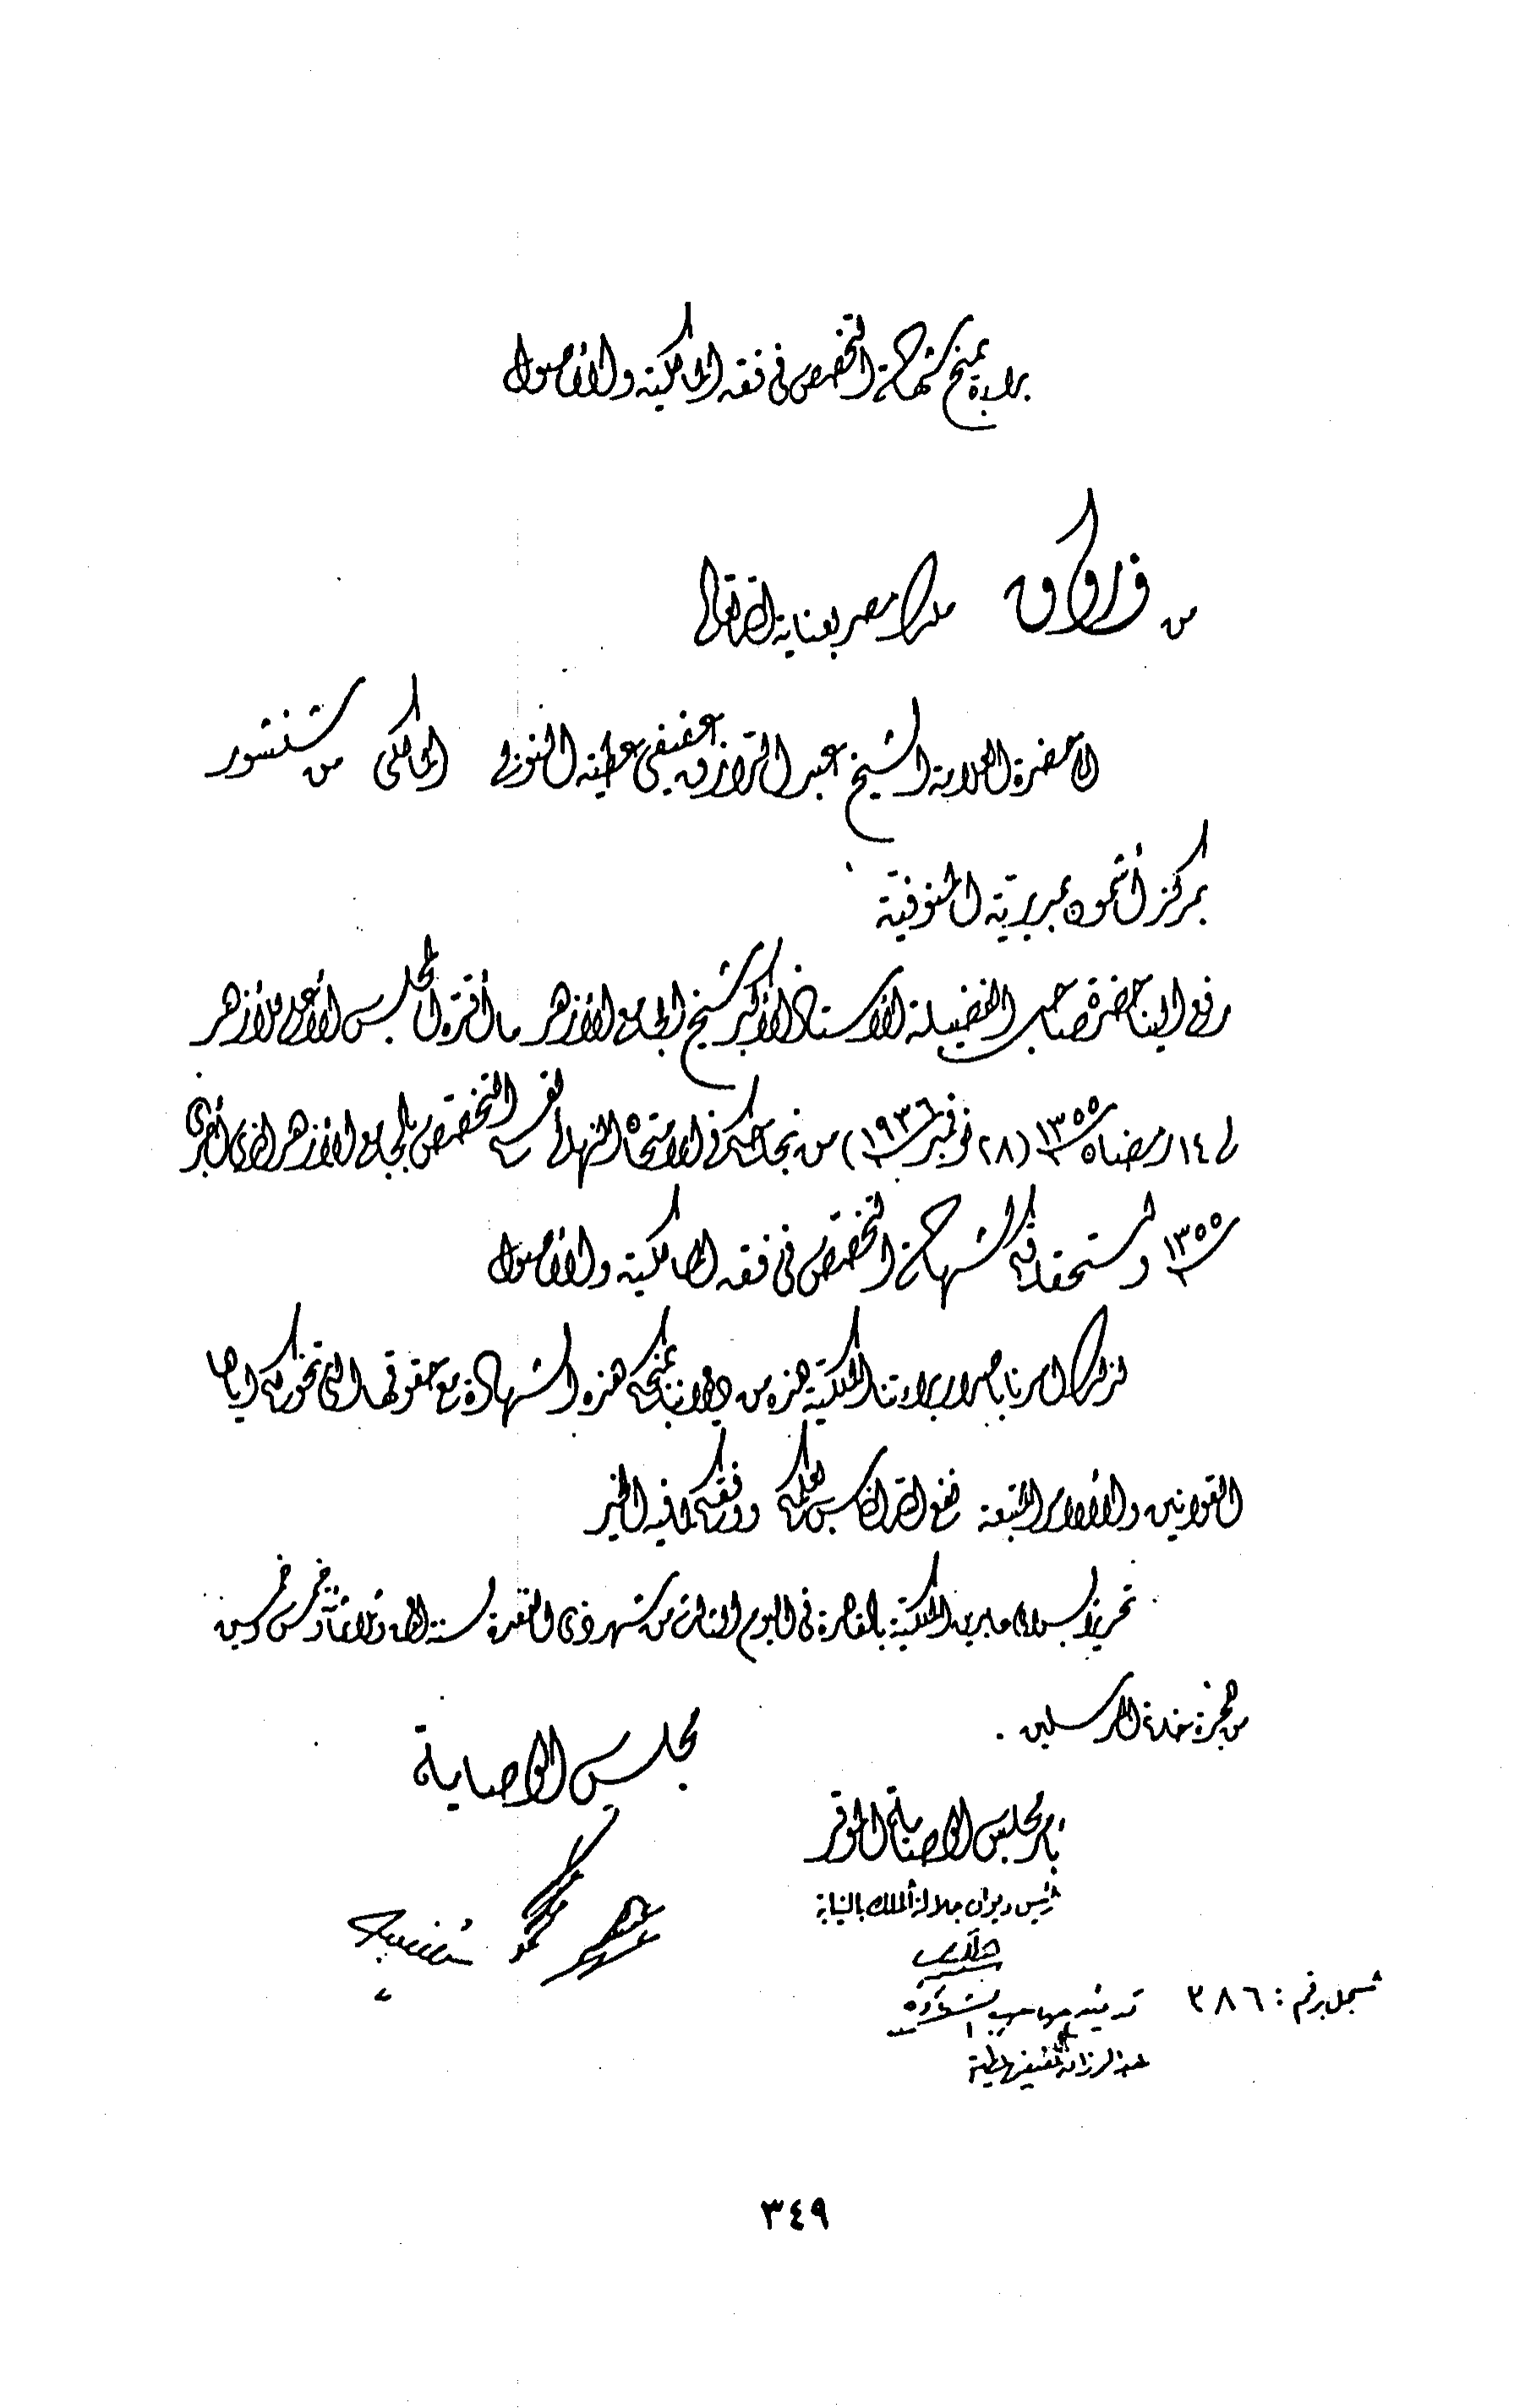 براءة بمنح شهادة التخصص فى فقه المالكية والأصول
من فاروق ملك مصر بعناية الله تعالى
إلى حضرة العلامة الشيخ عبد الرزاق عفيفى عطية النوبى المالكى من شنشور
بمركز أشمون بمديرية المنوفية
رفع إلينا حضرة صاحب الفضيلة الأستاذ الأكبر شيخ الجامع الأزهر ما أقره المجلس الأعلى للأزهر
فى ١٤ رمضان ١٣٥٥ (٢٨ نوفمبر ١٩٣٦) من نجاحكم فى الامتحان النهائى لقسم التخصص بالجامع الأزهر الذى أجرى
١٣٥٥ واستحقاقكم لشهادة التخصص فى فقه المالكية والأصول
لذلك أمرنا بإصدار براءتنا الملكية هذه من ديواننا بمنحكم هذه الشهادة مع حقوقها التى تخولكم إياها
القوانين والأوامر المتبعة نفع الله الناس بعلمكم ووفقكم لما فيه الخير
تحريرا بسراى عابدين الملكية بالقاهرة فى اليوم الثالث من شهر ذى القعدة لسنة ألف وثلثمائة وخمس وخمسين
من هجرة خاتم المرسلين.
مجلس الوصاية
بأمر مجلس الوصاية الموقر
رئيس ديوان جلالة الملك بالنيابة
مسجل برقم: ٣٨٦
عبد الرزاق عفيفى عطية
٣٤٩